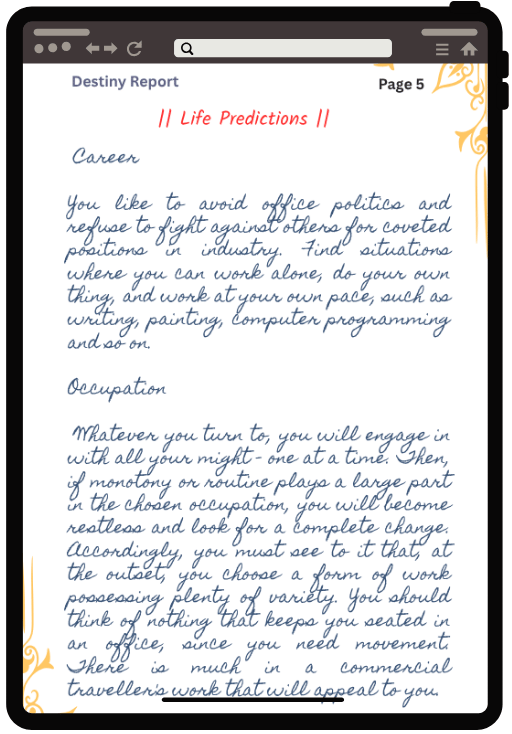 Destiny Report
Page 5
|| Life Predictions ||
Career
You like to avoid office politics and
refuse to fight against others for coveted
positions in industry. Find situations
where you can work alone, do your own
thing, and work at your own pace, such as
writing, painting, computer programming
and so on.
Occupation
Whatever you turn to, you will engage in
with all your might - one at a time. Then,
if monotony or routine plays a large part
in the chosen occupation, you will become
restless and look for a complete change.
Accordingly, you must see to it that, at
the outset, you choose a form of work
possessing plenty of variety. You should
think of nothing that keeps you seated in
an office, since you need movement.
There is much in a commercial
traveller's work that will appeal to you.